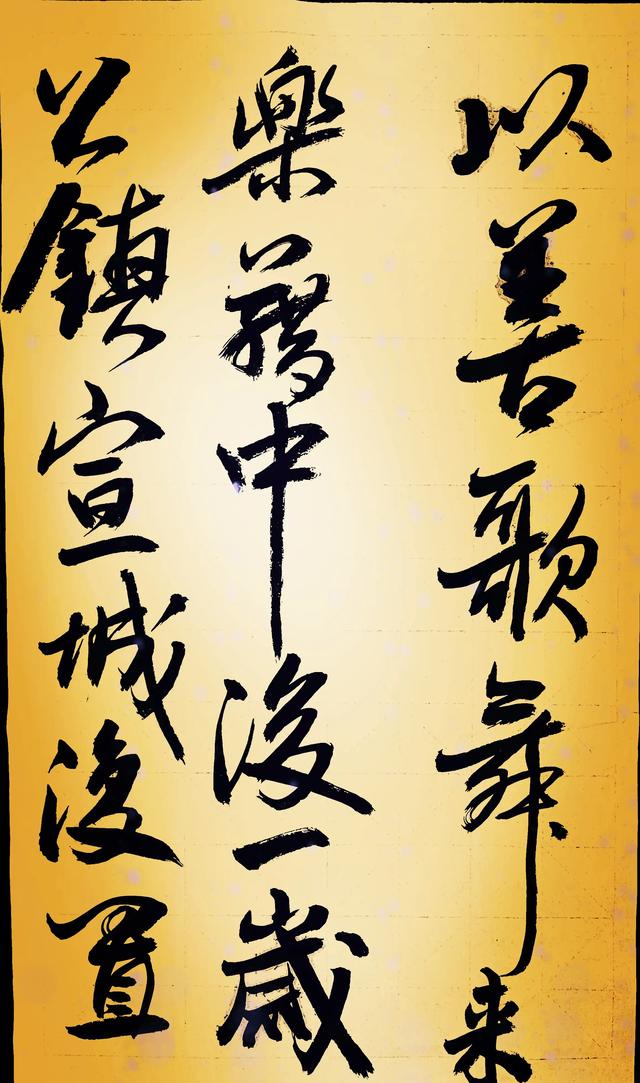 以善歌舞来
樂籍中後一歲
公鎮宣城復置